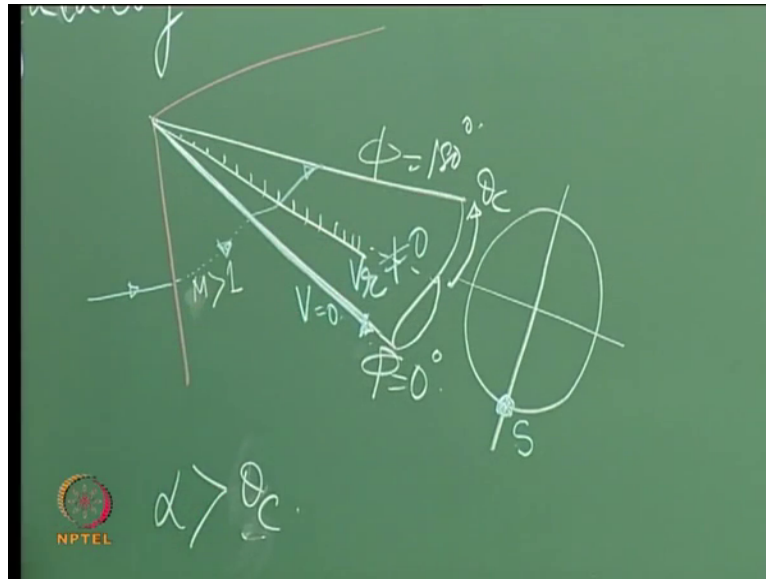 ϕ=180°.
θc
M>1
V=0.
Vr≠0
ϕ=0°.
S
α > θc.
NPTEL